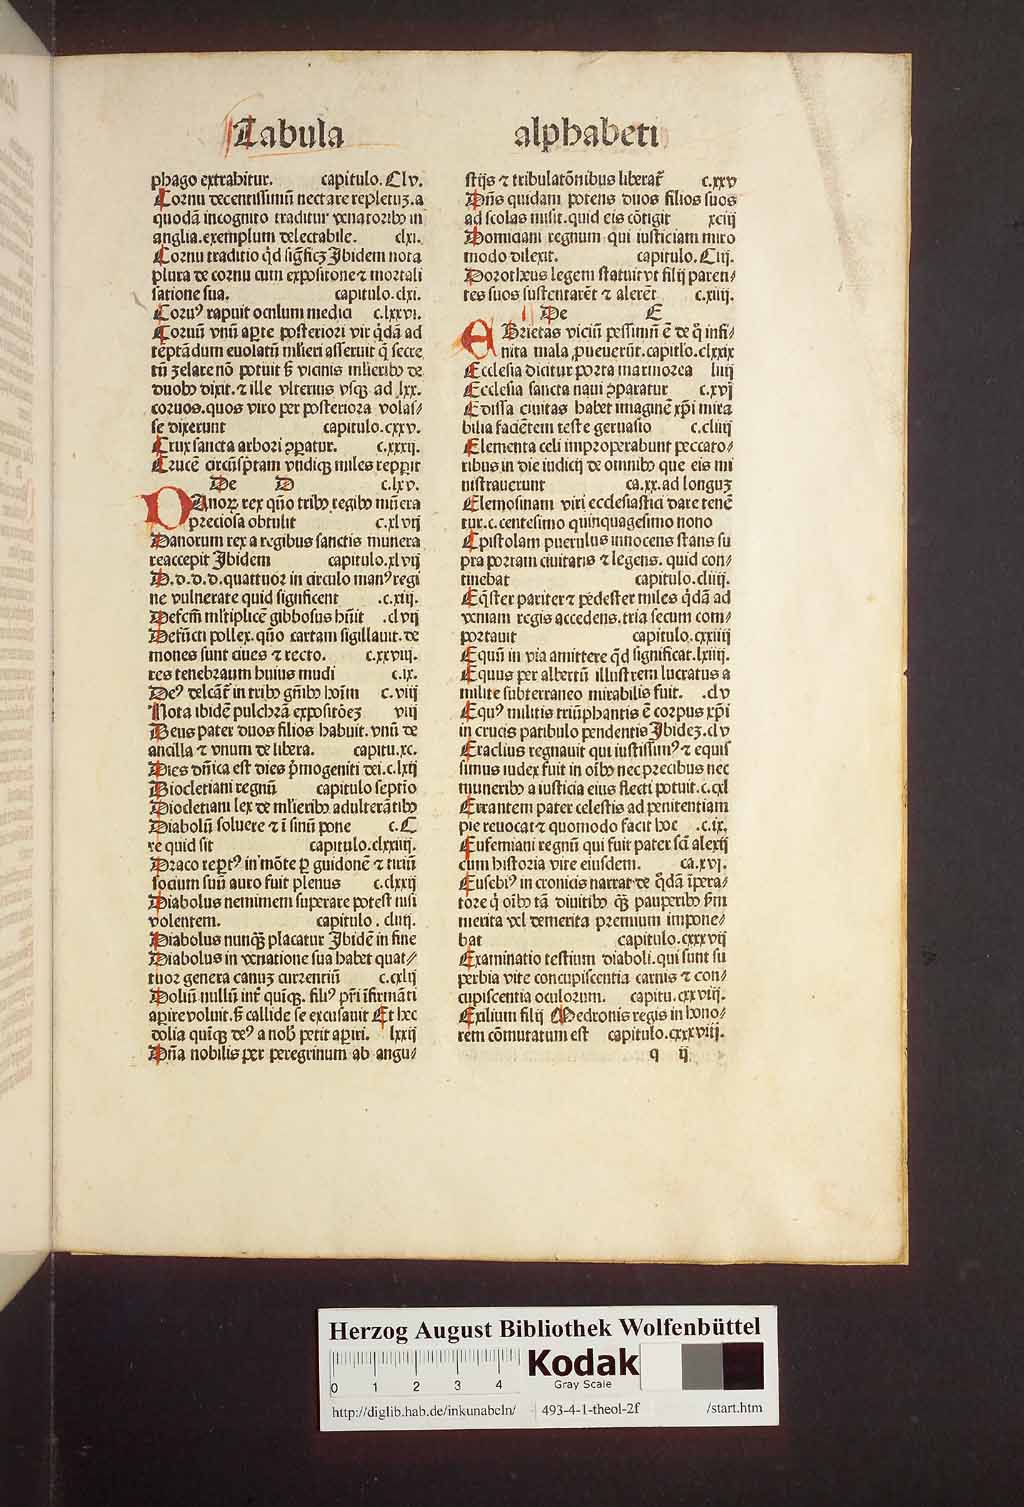 Tabula alphabeti
phago extrahitur. capitulo. Clv.
Cornu decentissimũ nectare repletuꝫ. a
quodã incognito traditur venatoribꝰ in
anglia. exemplum delectabile. clxi.
Cornu traditio qd̓ sigͥficꝫ Ibidem nota
plura de cornu cum expositone ⁊ mortali
satione sua. capitulo. clxi.
Coruꝰ rapuit oculum medici c. lxxvi.
Coruũ vnũ aꝑte posteriori vir qͥdã ad
temptãdum euolatũ mlieri asseruit q̃ secre
tũ ʒelare nõ potuit sꝫ vicinis mlieribꝰ de
duobꝰ dixit. ⁊ ille vlterius vsqꝫ ad lxx.
coruos. quos viro per posteriora volas⸗
se dixerunt capitulo. cxxv.
Crux sancta arbori ꝯꝑatur. c. xxxij.
Crucẽ circũsp̃tam vndiqꝫ miles repꝑit
De D c. lxv.
DAnoꝝ rex qño tribꝰ regibꝰ muñera
preciosa obtulit c. xlvij
Danorum rex a regibus sanctis munera
reaccepit Ibidem capitulo. xlvij
D. d. d. d. quattuor in circulo manꝰ regi
ne vulnerate quid significent .c. xiij.
Defcm̃ mltiplicẽ gibbosus hũit .clvij
Defũcti pollex. qño cartam sigillauit. de
mones sunt ciues ⁊ recto. c. xxviij.
res tenebrarum huius mudi c. ix.
Deꝰ delcãt̃ in tribꝰ gñibꝰ hoĩm c. viij
Nota ibidẽ pulchrã expositõeꝫ viij
Deus pater duos filios habuit. vnũ de
ancilla ⁊ vnum de libera. capitu. xc.
Dies dñica est dies p̃mogeniti dei. c. lxij
Diocletiani regnũ capitulo septĩo
Diocletiani lex de mlieribꝰ adulterãtibꝰ
Diabolũ soluere ⁊ ĩ sinũ pone c. C
re quid sit capitulo. clxxiiij.
Draco repꝑtꝰ in mõte ꝑ guidonẽ ⁊ tiriũ
socium suũ auro fuit plenus c. clxxij
Diabolus neminem superare potest nisi
volentem. capitulo. cluij.
Diabolus nunqͣꝫ placatur Ibidẽ in fine
Diabolus in venatione sua habet quat⸗
tuor genera canuꝫ currentiũ c. cxlij
Doliũ nullũ int̓ quiqꝫ. filiꝰ pr̃i ĩfirmãti
aꝑire voluit. sꝫ callide se excusauit Et hec
dolia quiqꝫ deꝰ a nobꝰ petit aꝑiri. lxxij
Dña nobilis per peregrinum ab angu⸗
stijs ⁊ tribulatõnibus liberat̃ c. xxv
Dñs quidam potens duos filios suos
ad scolas misit. quid eis cõtigit xciij
Domiciani regnum qui iusticiam miro
modo dilexit. capitulo. Ciij.
Dorotheus legem statuit vt filij paren⸗
tes suos sustentarẽt ⁊ alerẽt c. xiiij.
De E
EBrietas viciũ pessimũ ẽ de q̃ infi⸗
nita mala ꝓueuerũt. capitlo. clxxix
Ecclesia dicitur porta marmorea liiij
Ecclesia sancta naui ꝯparatur c. xvj
Edissa ciuitas habet imaginẽ xp̃i mira
bilia faciẽtem teste geruasio c. cliiij
Elementa celi improperabunt peccato⸗
ribus in die iudicij de omnibꝰ que eis mi
nistrauerunt ca. xx. ad longuꝫ
Elemosinam viri ecclesiastici dare tenẽ
tur. c. centesimo quinquagesimo nono
Epistolam puerulus innocens stans su
pra portam ciuitatis ⁊ legens. quid con⸗
tinebat capitulo. cliiij.
Eqͥster pariter ⁊ pedester miles qͥdã ad
veniam regis accedens. tria secum com⸗
portauit capitulo. cxxiiij
Equũ in via amittere qd̓ significat. lxiiij.
Equus per albertũ illustrem lucratus a
milite subterraneo mirabilis fuit. .clv
Equꝰ militis triũphantis ẽ corpus xp̃i
in crucis patibulo pendentis Ibideꝫ. clv
Eraclius regnauit qui iustissimꝰ ⁊ equis
simus iudex fuit in oĩbꝰ nec precibus nec
muneribꝰ a iusticia eius flecti potuit. c. cxl
Errantem pater celestis ad penitentiam
pie reuocat ⁊ quomodo facit hoc .c. ix.
Eufemiani regnũ qui fuit pater scĩ alexij
cum historia vite eiusdem. ca. xvj.
Eusebiꝰ in cronicis narrat de qͥdã ĩpera⸗
tore q̓ oĩbꝰ tã diuitibꝰ qͣꝫ pauperibꝰ ẜm
merita vel demerita premium impone⸗
bat capitulo. cxxxvij
Examinatio testium diaboli. qui sunt su
perbia vite concupiscentia carnis ⁊ con⸗
cupiscentia oculorum. capitu. cxxviij.
Exilium filij Medronis regis in hono⸗
rem cõmutatum est capitulo. cxxxviij.
q ij
Herzog August Bibliothek Wolfenbüttel
0 1 2 3 4
Kodak
Gray Scale
http://diglib.hab.de/inkunabeln/ 493-4-1-theol-2f /start.htm